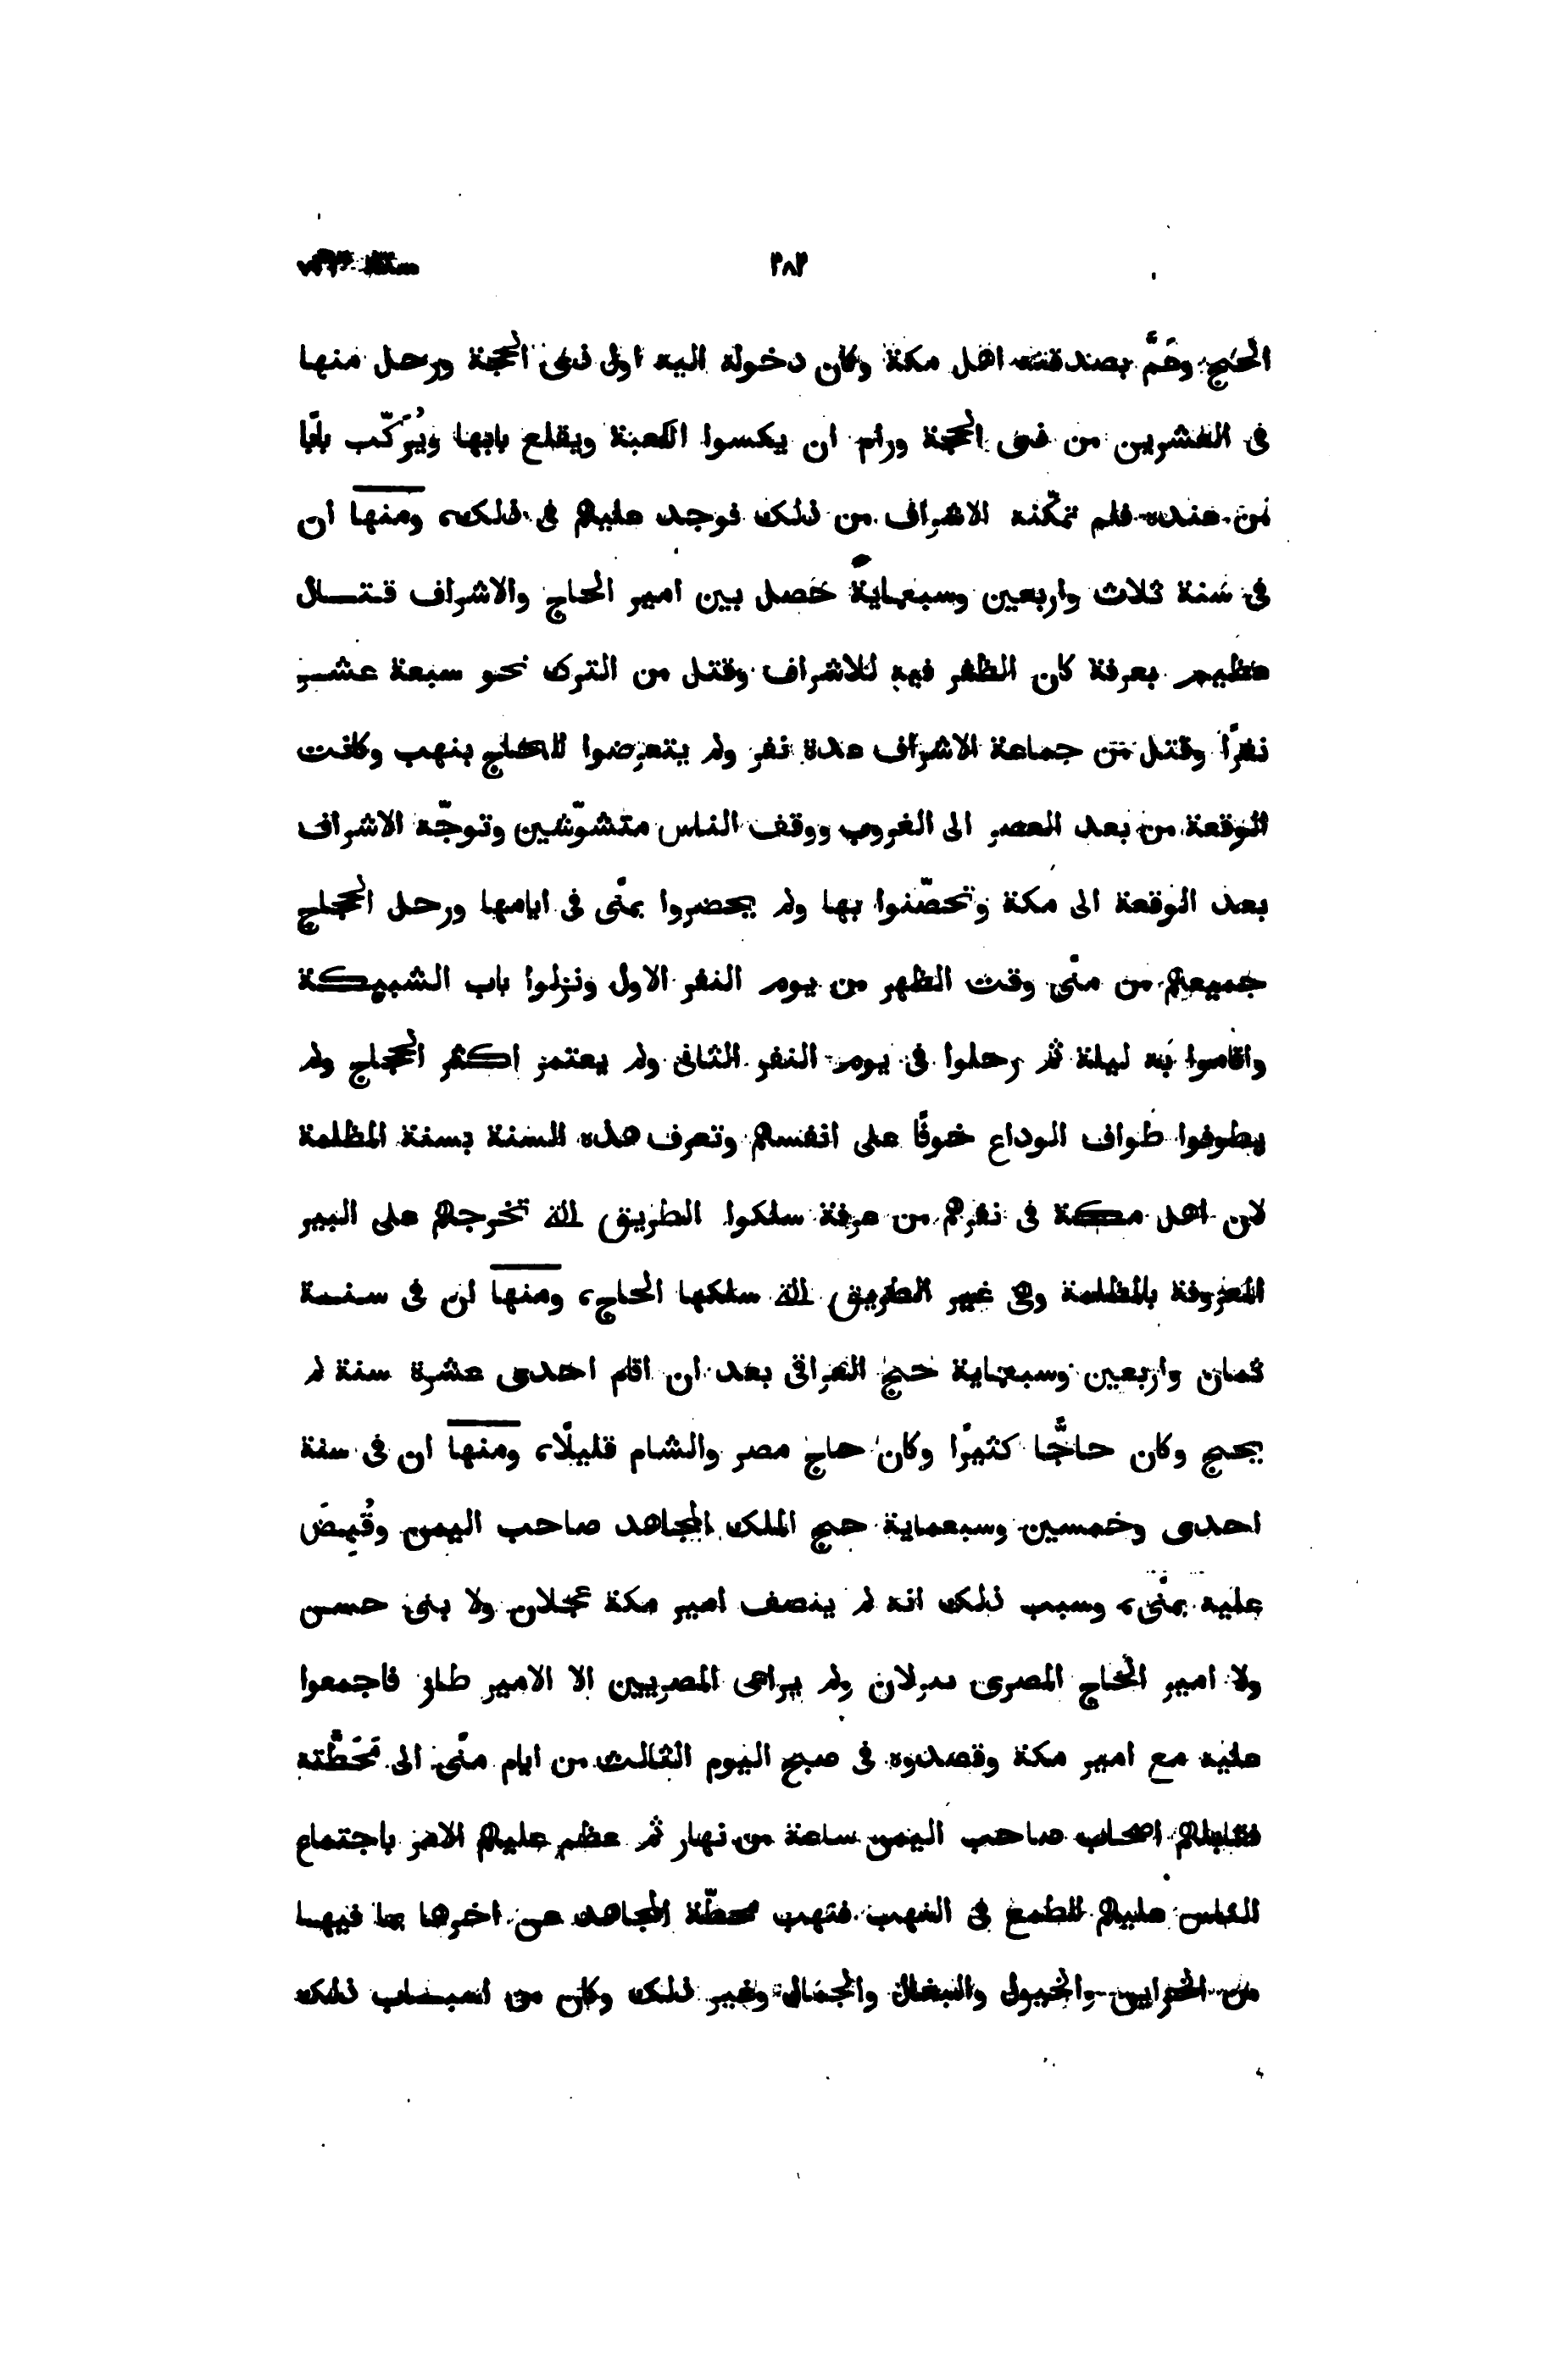 ٢٨٢
الحج وهَمَّ بصدقته اهل مكة وكان دخوله اليه اول ذى الحجة ورحل منها
فى العشرين من ذى الحجة ورام ان يكسوا الكعبة ويقلع بابها ويُرَكّب بابًا
من عنده فلم تمكّنه الاشراف من ذلك فوجد عليهم فى ذلك، ومنها ان
فى سنة ثلاث واربعين وسبعماية حصل بين امير الحاج والاشراف قتال
عظيم بعرفة كان الظفر فيه للاشراف وقتل من الترك نحو سبعة عشر
نفرًا وقتل من جماعة الاشراف عدة نفر ولم يتعرضوا للحاج بنهب وكانت
الوقعة من بعد العصر الى الغروب ووقف الناس متشوّشين وتوجّه الاشراف
بعد الوقعة الى مكة وتحصّنوا بها ولم يحضروا بمنًى فى ايامها ورحل الحجاج
جميعهم من منًى وقت الظهر من يوم النفر الاول ونزلوا باب الشبيكة
واقاموا به ليلة ثم رحلوا فى يوم النفر الثانى ولم يعتمر اكثر الحجاج ولم
يطوفوا طواف الوداع خوفًا على انفسهم وتعرف هذه السنة بسنة المظلمة
لان اهل مكة فى نفرهم من عرفة سلكوا الطريق الله تخرجهم على البير
المعروفة بالمظلمة وهى غير الطريق الله سلكها الحاج، ومنها ان فى سنة
ثمان واربعين وسبعماية حج العراقى بعد ان اقام احدى عشرة سنة لم
يحج وكان حاجًّا كثيرًا وكان حاج مصر والشام قليلًا، ومنها ان فى سنة
احدى وخمسين وسبعماية حج الملك المجاهد صاحب اليمن وقُبِضَ
عليه بمنًى، وسبب ذلك انه لم ينصف امير مكة عجلان ولا بنى حسن
ولا امير الحاج المصرى ولم يراعى المصريين الا الامير طاز فاجمعوا
عليه مع امير مكة وقصدوه فى صبح اليوم الثالث من ايام منًى الى مَحَطَّته
فقابلهم اصحاب صاحب اليمن ساعة من نهار ثم عظم عليهم الامر باجتماع
الناس عليهم للطمع فى النهب فنهب محطّة المجاهد عن اخرها بما فيها
من الخزاين والخيول والبغال والجمال وغير ذلك وكان من اسباب ذلك